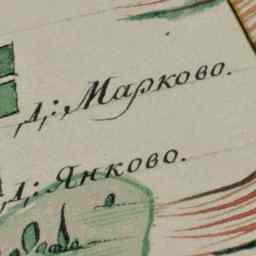 Д: Марково.
Д: Янково.